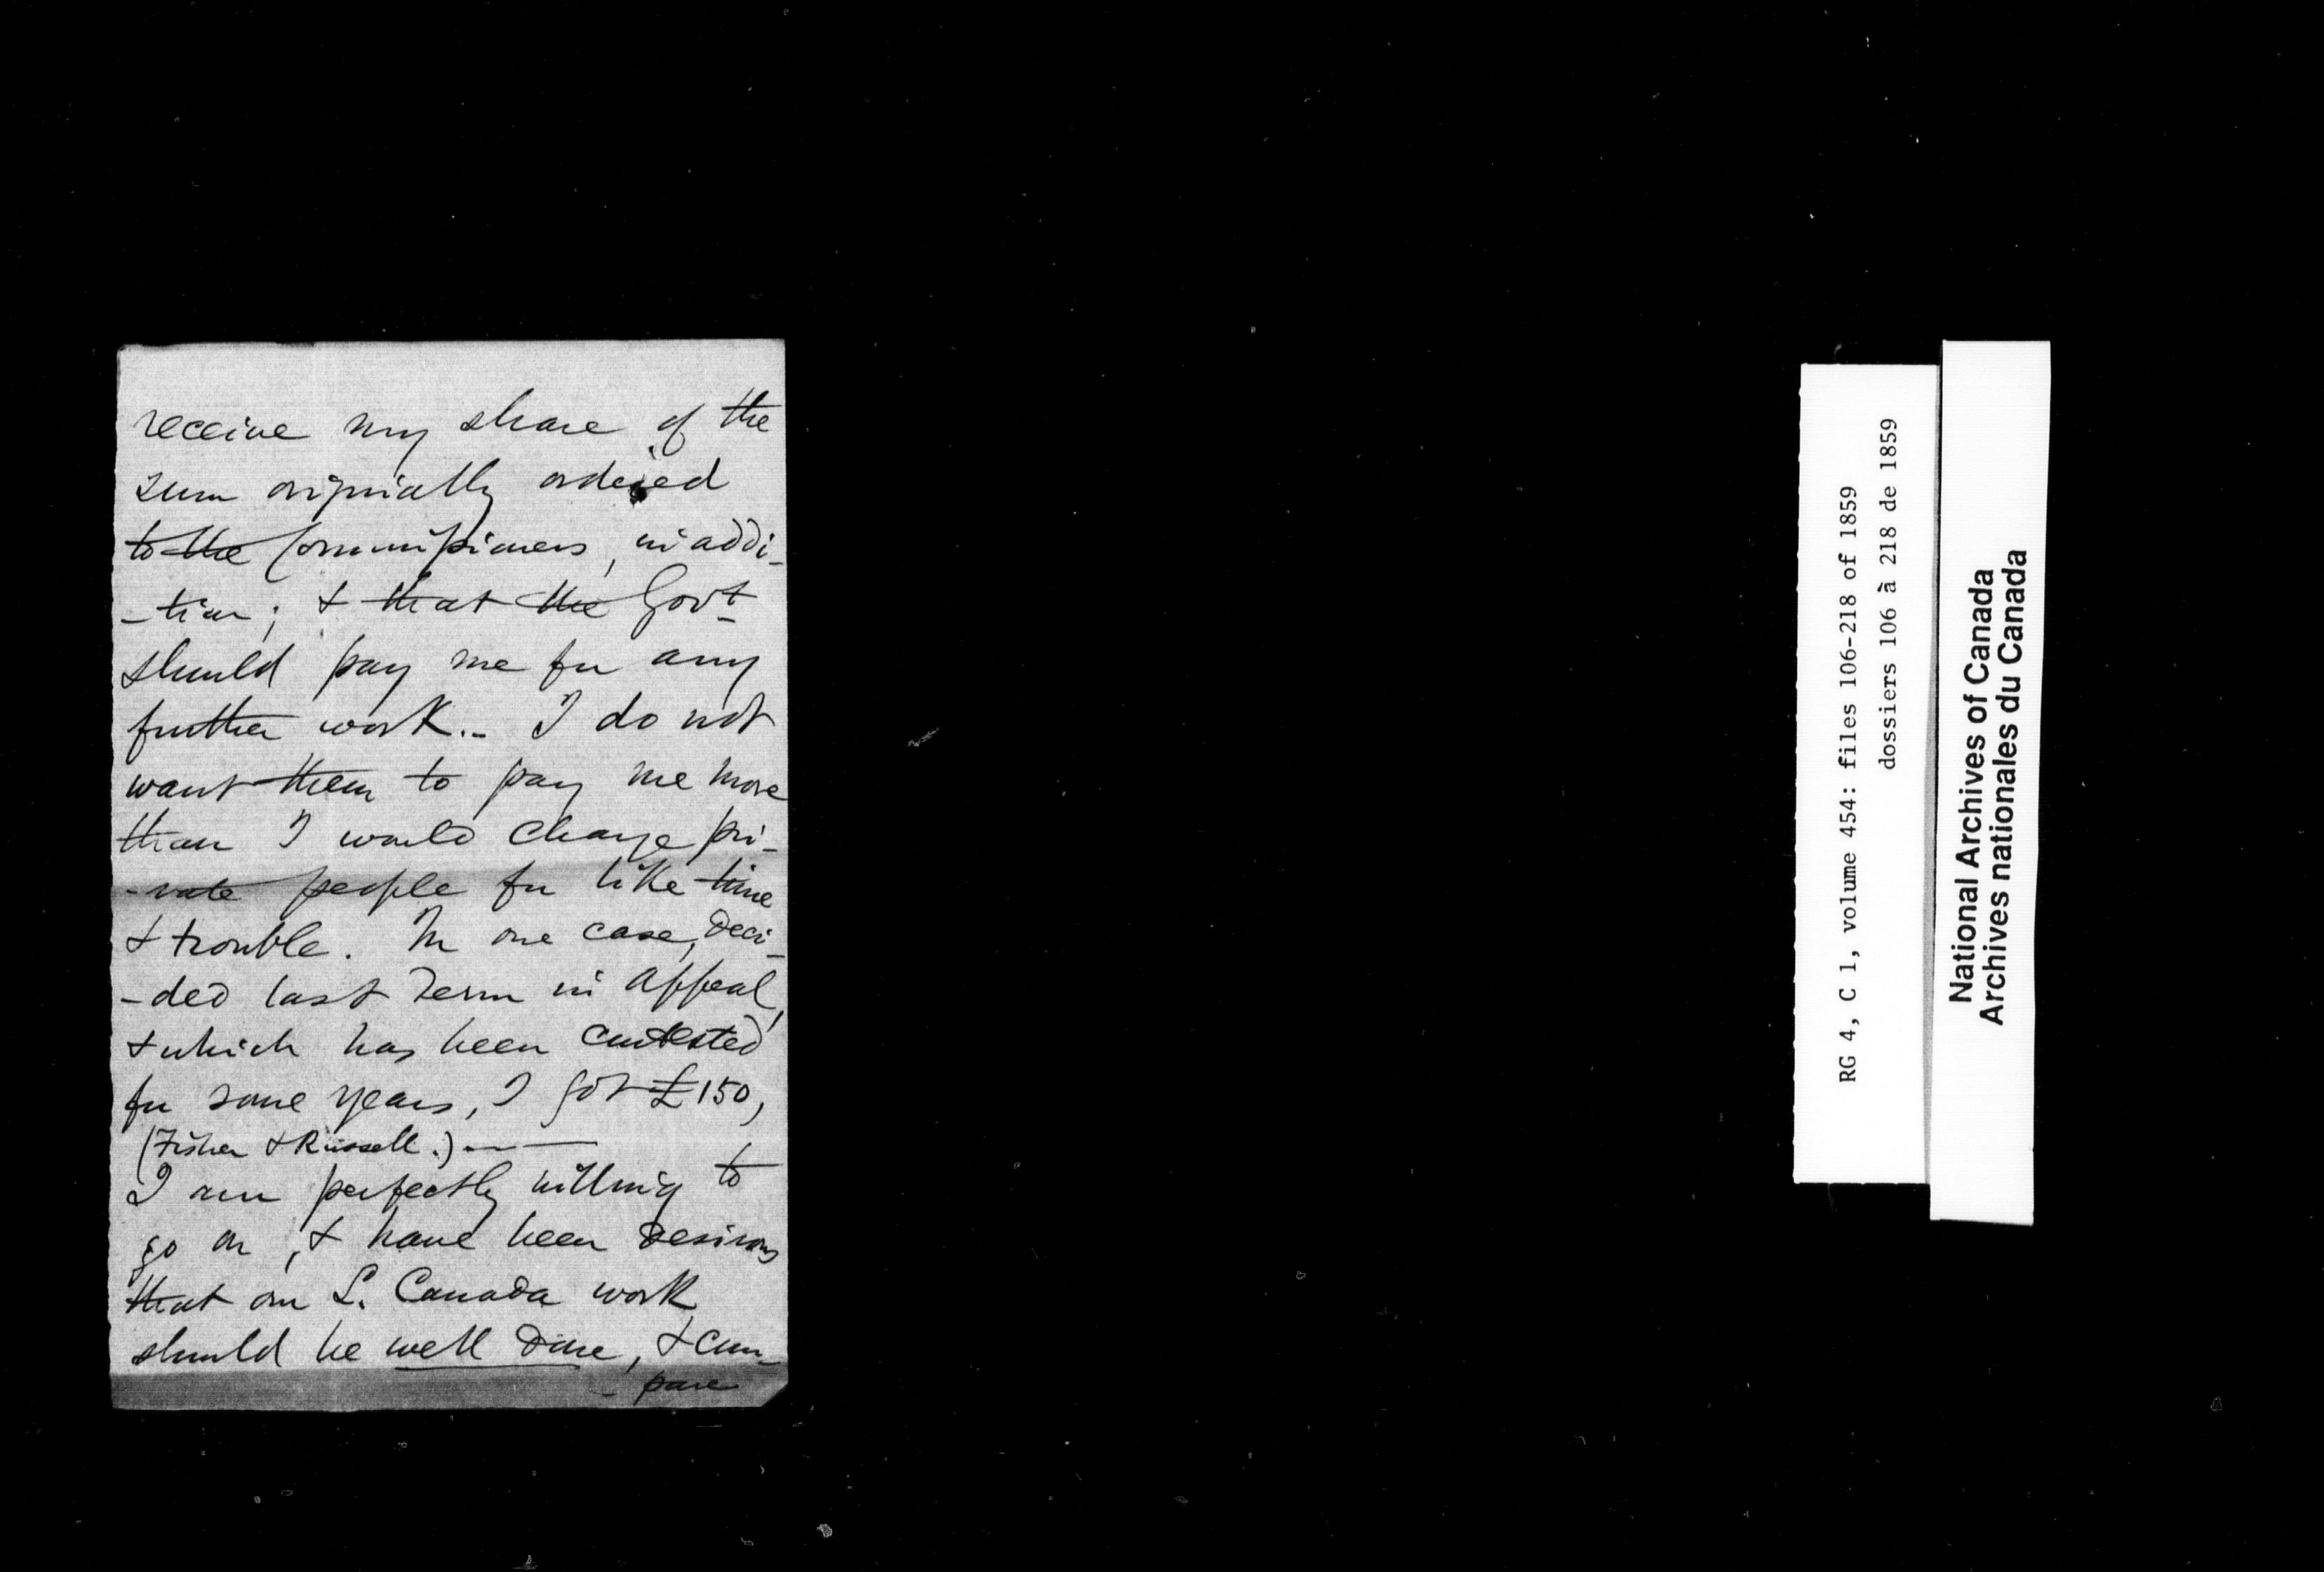 receive my share of the
sum originally ordered
to the Commissioners, in addi-
-tion; & that the Govt
should pay me for any
further work.- I do not
want them to pay me more
than I would charge pri-
-vate people for like time
& trouble. In one case, deci-
-ded last Term in Appeal,
& which has been contested
for some years, I got £150,
(Fisher & Russell.) —
I am perfectly willing to
go on, & have been desirous
that our L. Canada work
should be well done, & com-
- pare
RG 4, C 1, volume 454: files 106-218 of 1859
dossiers 106 à 218 de 1859
National Archives of Canada
Archives nationales du Canada